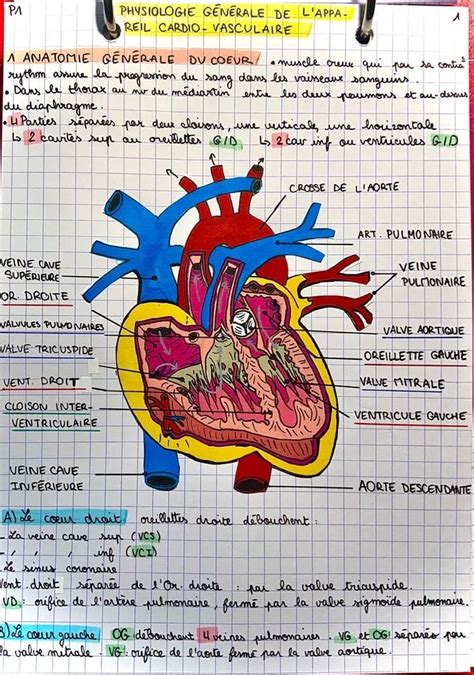 P1
PHYSIOLOGIE GÉNÉRALE DE L'APPA-
REIL CARDIO-VASCULAIRE
1
1 ANATOMIE GÉNÉRALE DU COEUR/ • muscle creux qui par sa contré
rythm assure la progression du sang dans les vaisseaux sanguins.
• Dans le thorax au nv du médiastin entre les deux poumons et au-dessus
du diaphragme.
• 4 Parties séparées par deux cloisons, une verticale, une horizontale
↳ 2 cavités sup ou oreillettes G/D ↳ 2 cav inf ou ventricules G/D
CROSSE DE L'AORTE
ART. PULMONAIRE
VEINE CAVE
SUPÉRIEURE
VEINE
PULMONAIRE
OR. DROITE
VALVULES PULMONAIRES
VALVE AORTIQUE
VALVE TRICUSPIDE
OREILLETTE GAUCHE
VENT. DROIT
VALVE MITRALE
CLOISON INTER-
VENTRICULAIRE
VENTRICULE GAUCHE
VEINE CAVE
INFÉRIEURE
AORTE DESCENDANTE
A) Le coeur droit/ oreillettes droite débouchent :
- La veine cave sup (VCS)
- / / / inf (VCI)
- Le sinus coronaire
Vent. droit séparée de l'Or. droite : par la valve tricuspide.
VD : orifice de l'artère pulmonaire, fermé par la valve sigmoïde pulmonaire.
B) Le coeur gauche/ OG débouchent 4 veines pulmonaires. VG et OG séparés par
la valve mitrale. VG : orifice de l'aorte fermé par la valve aortique.